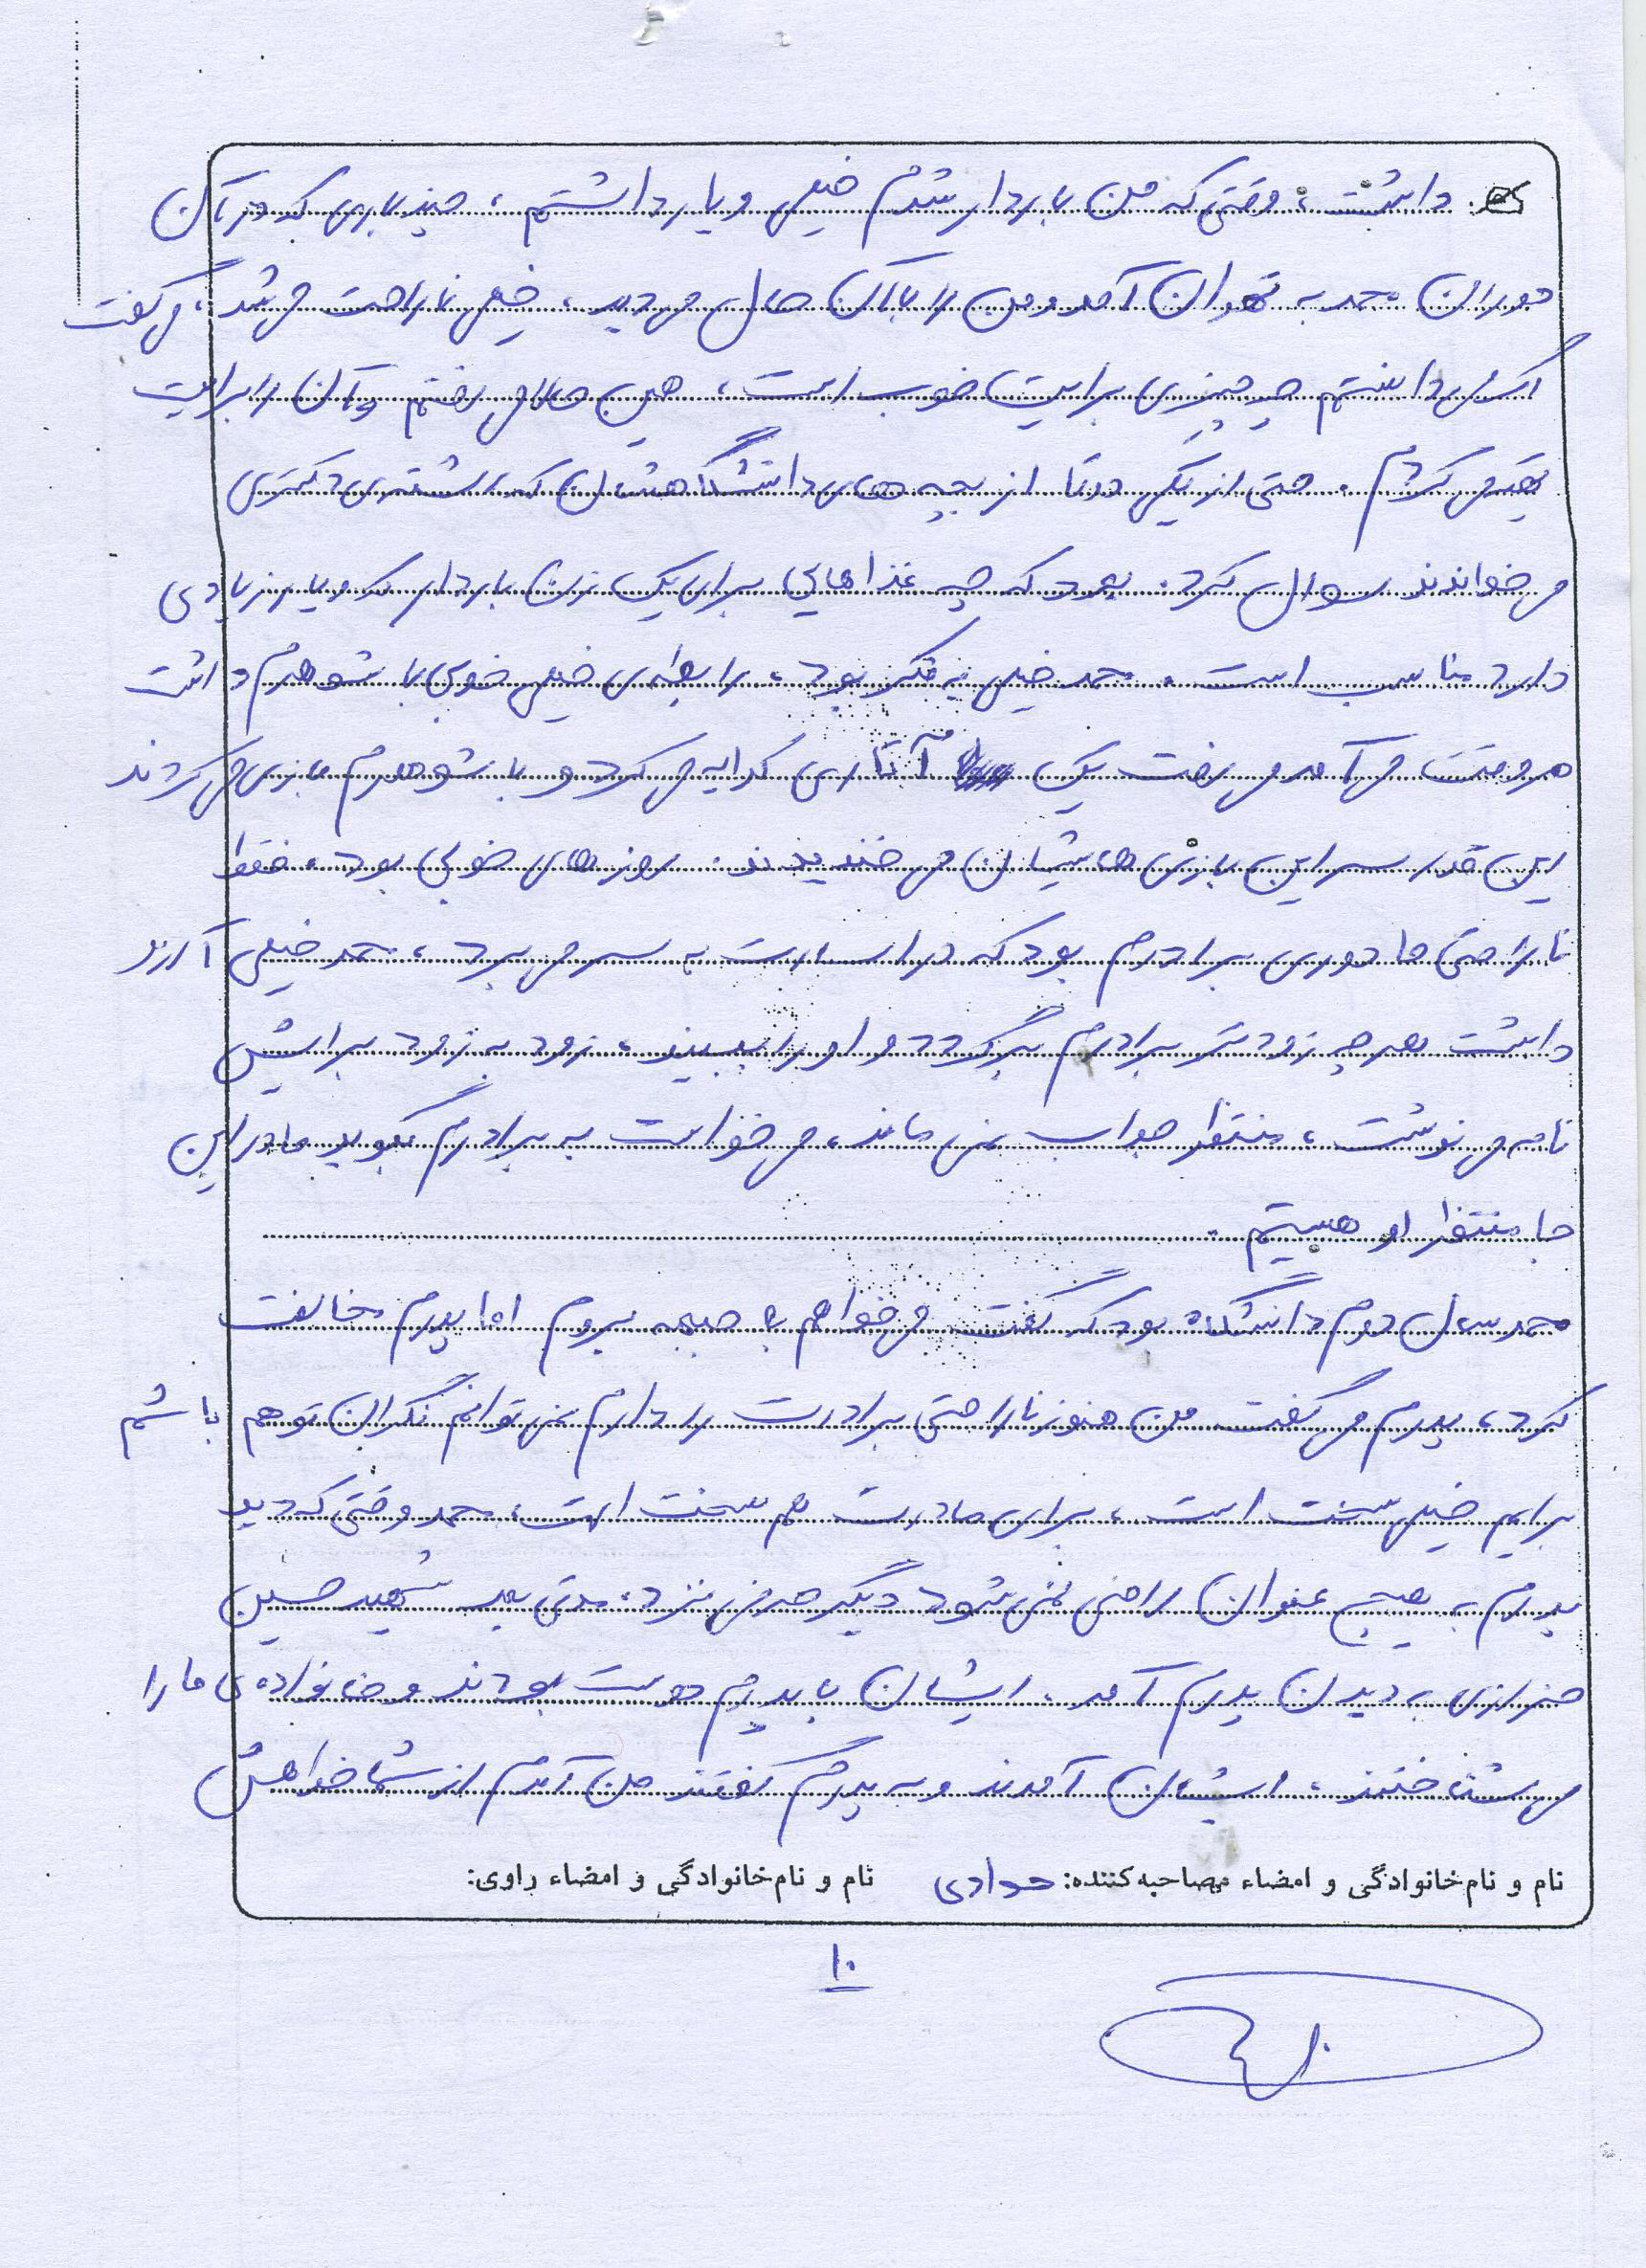 داشت، وقتی که من باردار شدم خیلی ویار داشتم، چند باری که در آن
دوران محمد به تهران آمد و من را با آن حال می دید، خیلی ناراحت می شد، می گفت
اگر می دانستم چه چیزی برایت خوب است، همین حالا می رفتم و آن را برایت
تهیه می کردم. حتی از یکی دو تا از بچه های دانشگاهشان که رشته ی دکتری
می خواندند سوال کرده بود که چه غذاهایی برای یک زن باردار که ویار زیادی
دارد مناسب است. محمد خیلی به فکر بود، رابطه ی خیلی خوبی با شوهرم داشت
هر وقت می آمد می رفت یک آتاری کرایه می کرد و با شوهرم بازی می کردند
این قدر سر این بازی هایشان می خندیدند. روزهای خوبی بود، فقط
ناراحتی ما دوری برادرم بود که در اسارت به سر می برد، محمد خیلی آرزو
داشت هر چه زودتر برادرم برگردد و او را ببیند، زود به زود برایش
نامه می نوشت، منتظر جواب نمی ماند، می خواست به برادرم بگوید ما در این
جا منتظر او هستیم.
محمد سال دوم دانشگاه بود که گفت می خواهم به جبهه بروم اما پدرم مخالفت
کرد، پدرم می گفت من هنوز ناراحتی برادرت را دارم نمی توانم نگران تو هم باشم
برایم خیلی سخت است، برای مادرت هم سخت است، محمد وقتی که دید
پدرم به هیچ عنوان راضی نمی شود دیگر حرفی نزد، مدتی بعد شهید حسین
خرازی به دیدن پدرم آمد، ایشان با پدرم دوست بودند و خانواده ی ما را
می شناختند، ایشان آمدند و به پدرم گفتند من آمدم از شما خواهش
نام و نام خانوادگی و امضاء مصاحبه کننده: جوادی نام و نام خانوادگی و امضاء راوی:
۱۰